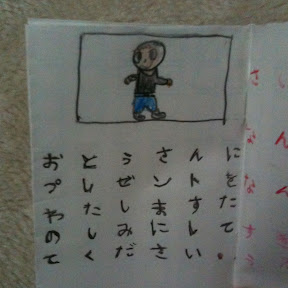 おとうさんに
プレゼントを
わたしますた
のしみにして
てください。